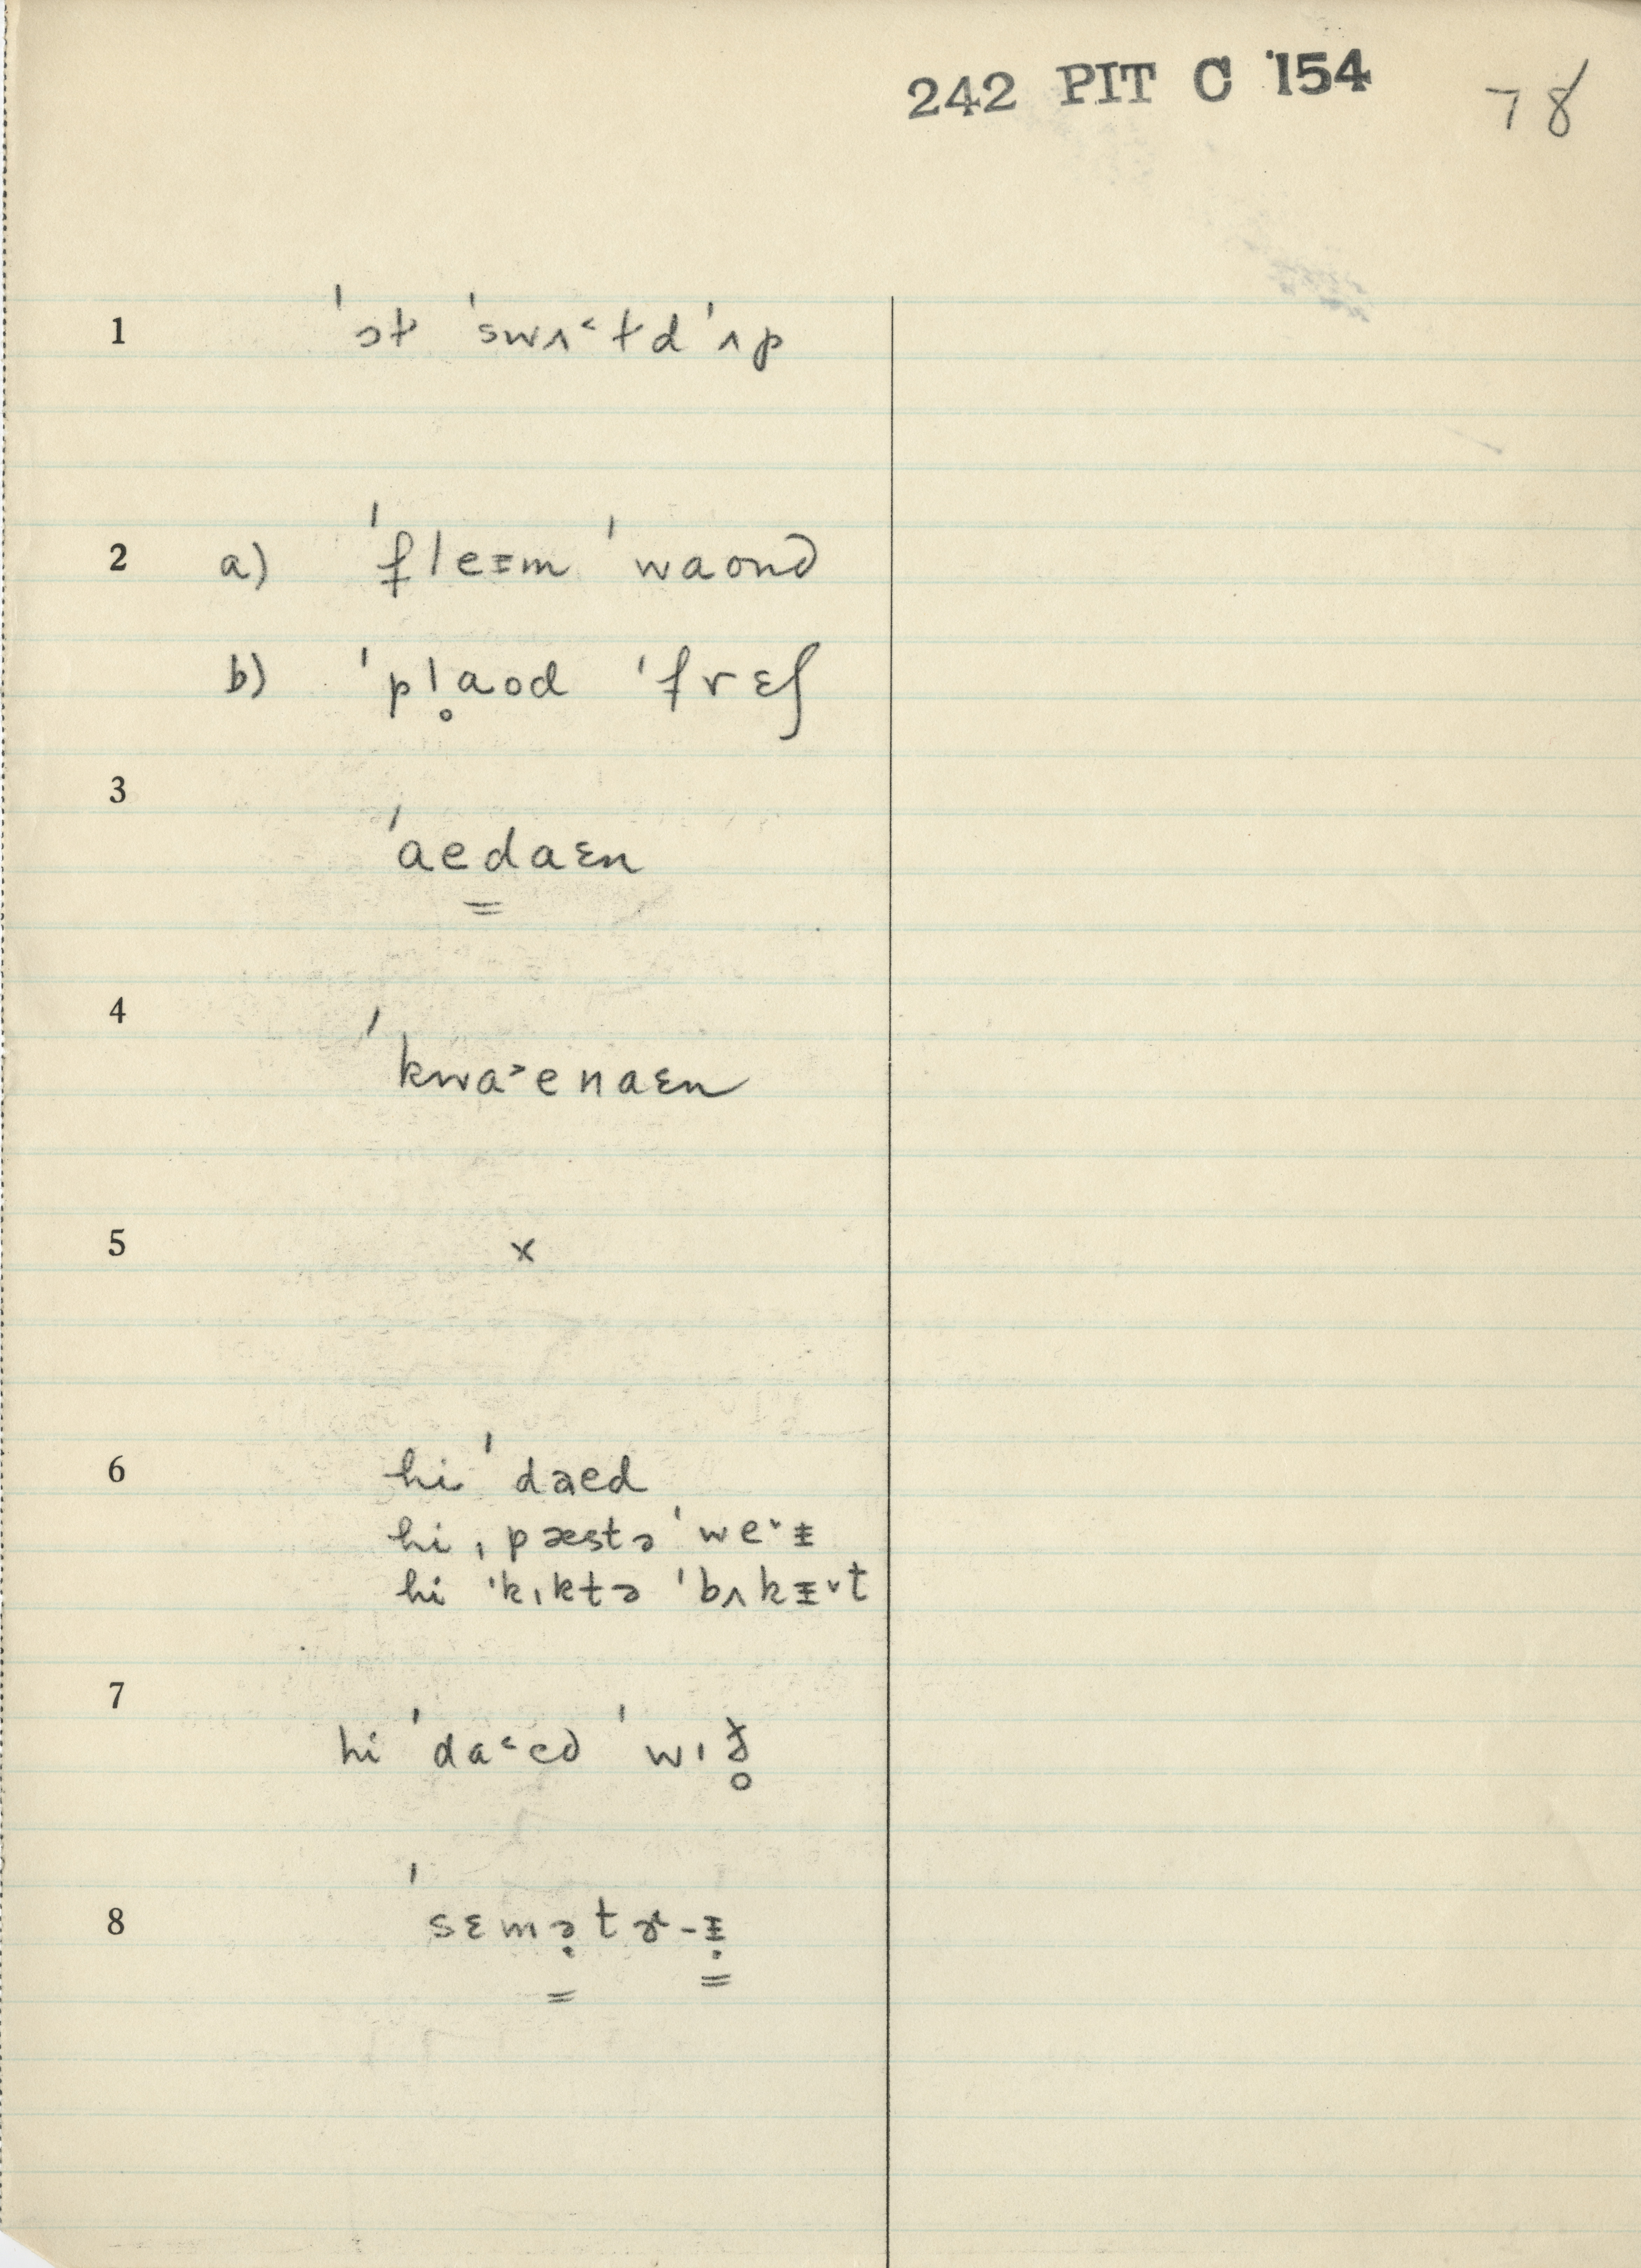 242 PIT C 154 78
1 ˈɔt ˈswʌ˂tdˈʌp
2 a) ˈfleɪm ˈwaond
b) ˈpl̥aod ˈfrɛʃ
3 ˈaedaɛn
4 ˈkwa˃enaɛn
5 x
6 hi ˈdaed
hi ˌpæstə ˈwe˅ᵻ
hi ˈkɪktə ˈbʌkᵻ˅t
7 hi ˈda˂ed ˈwɪð̥
8 ˈsɛmə̣tɚ-ᵻ̣